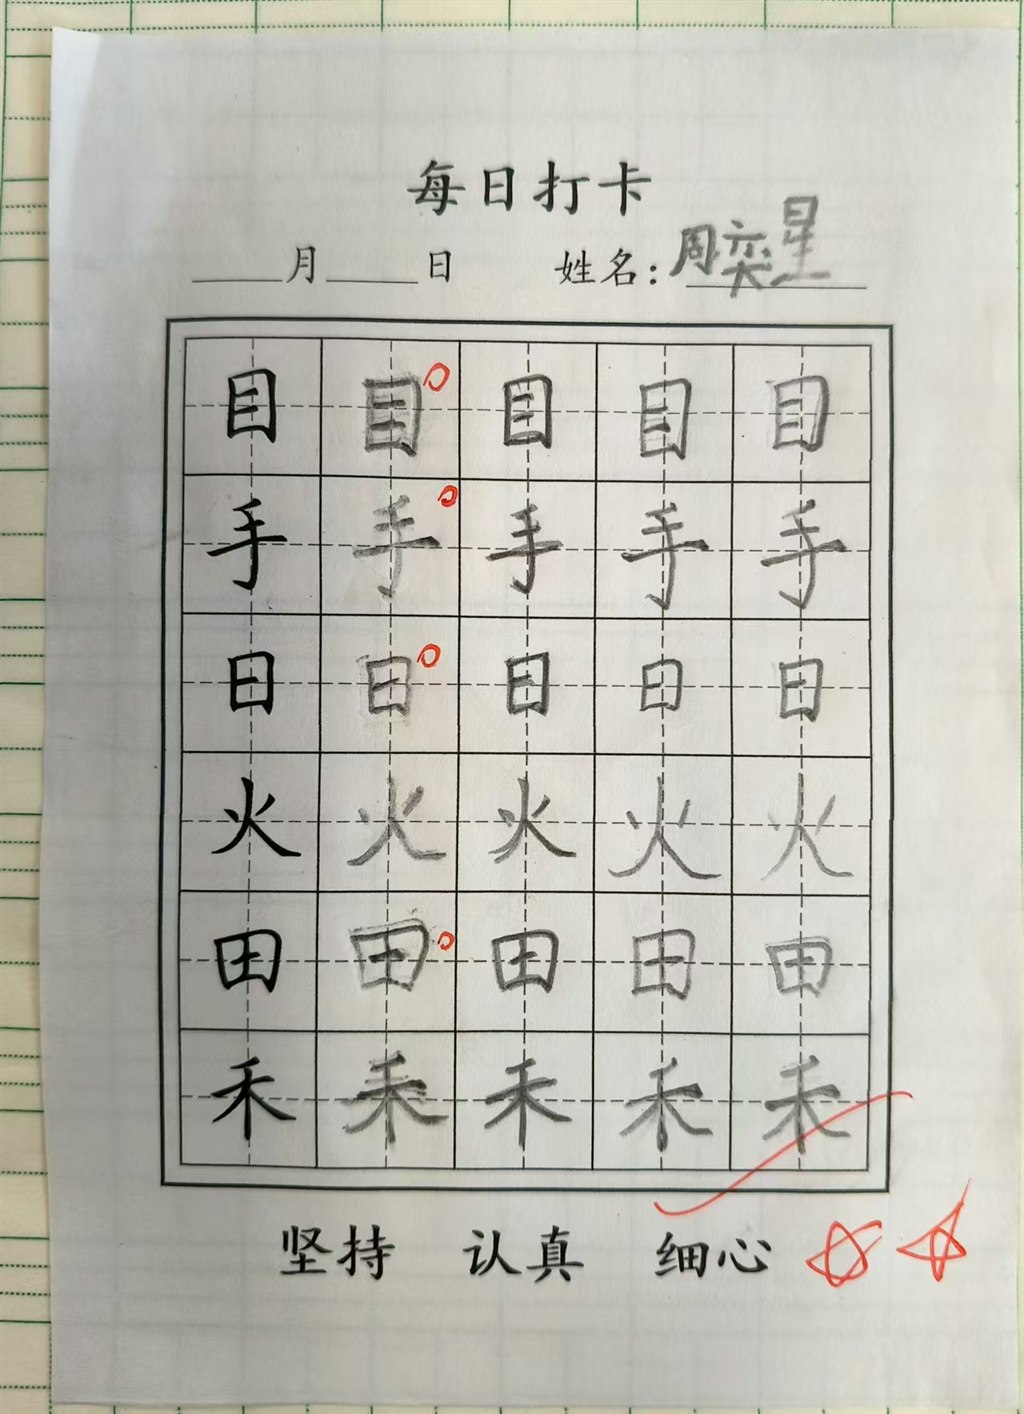 每日打卡
____月____日 姓名：周奕星
目 目 目 目 目
手 手 手 手 手
日 日 日 日 日
火 火 火 火 火
田 田 田 田 田
禾 禾 禾 禾 禾
坚持 认真 细心